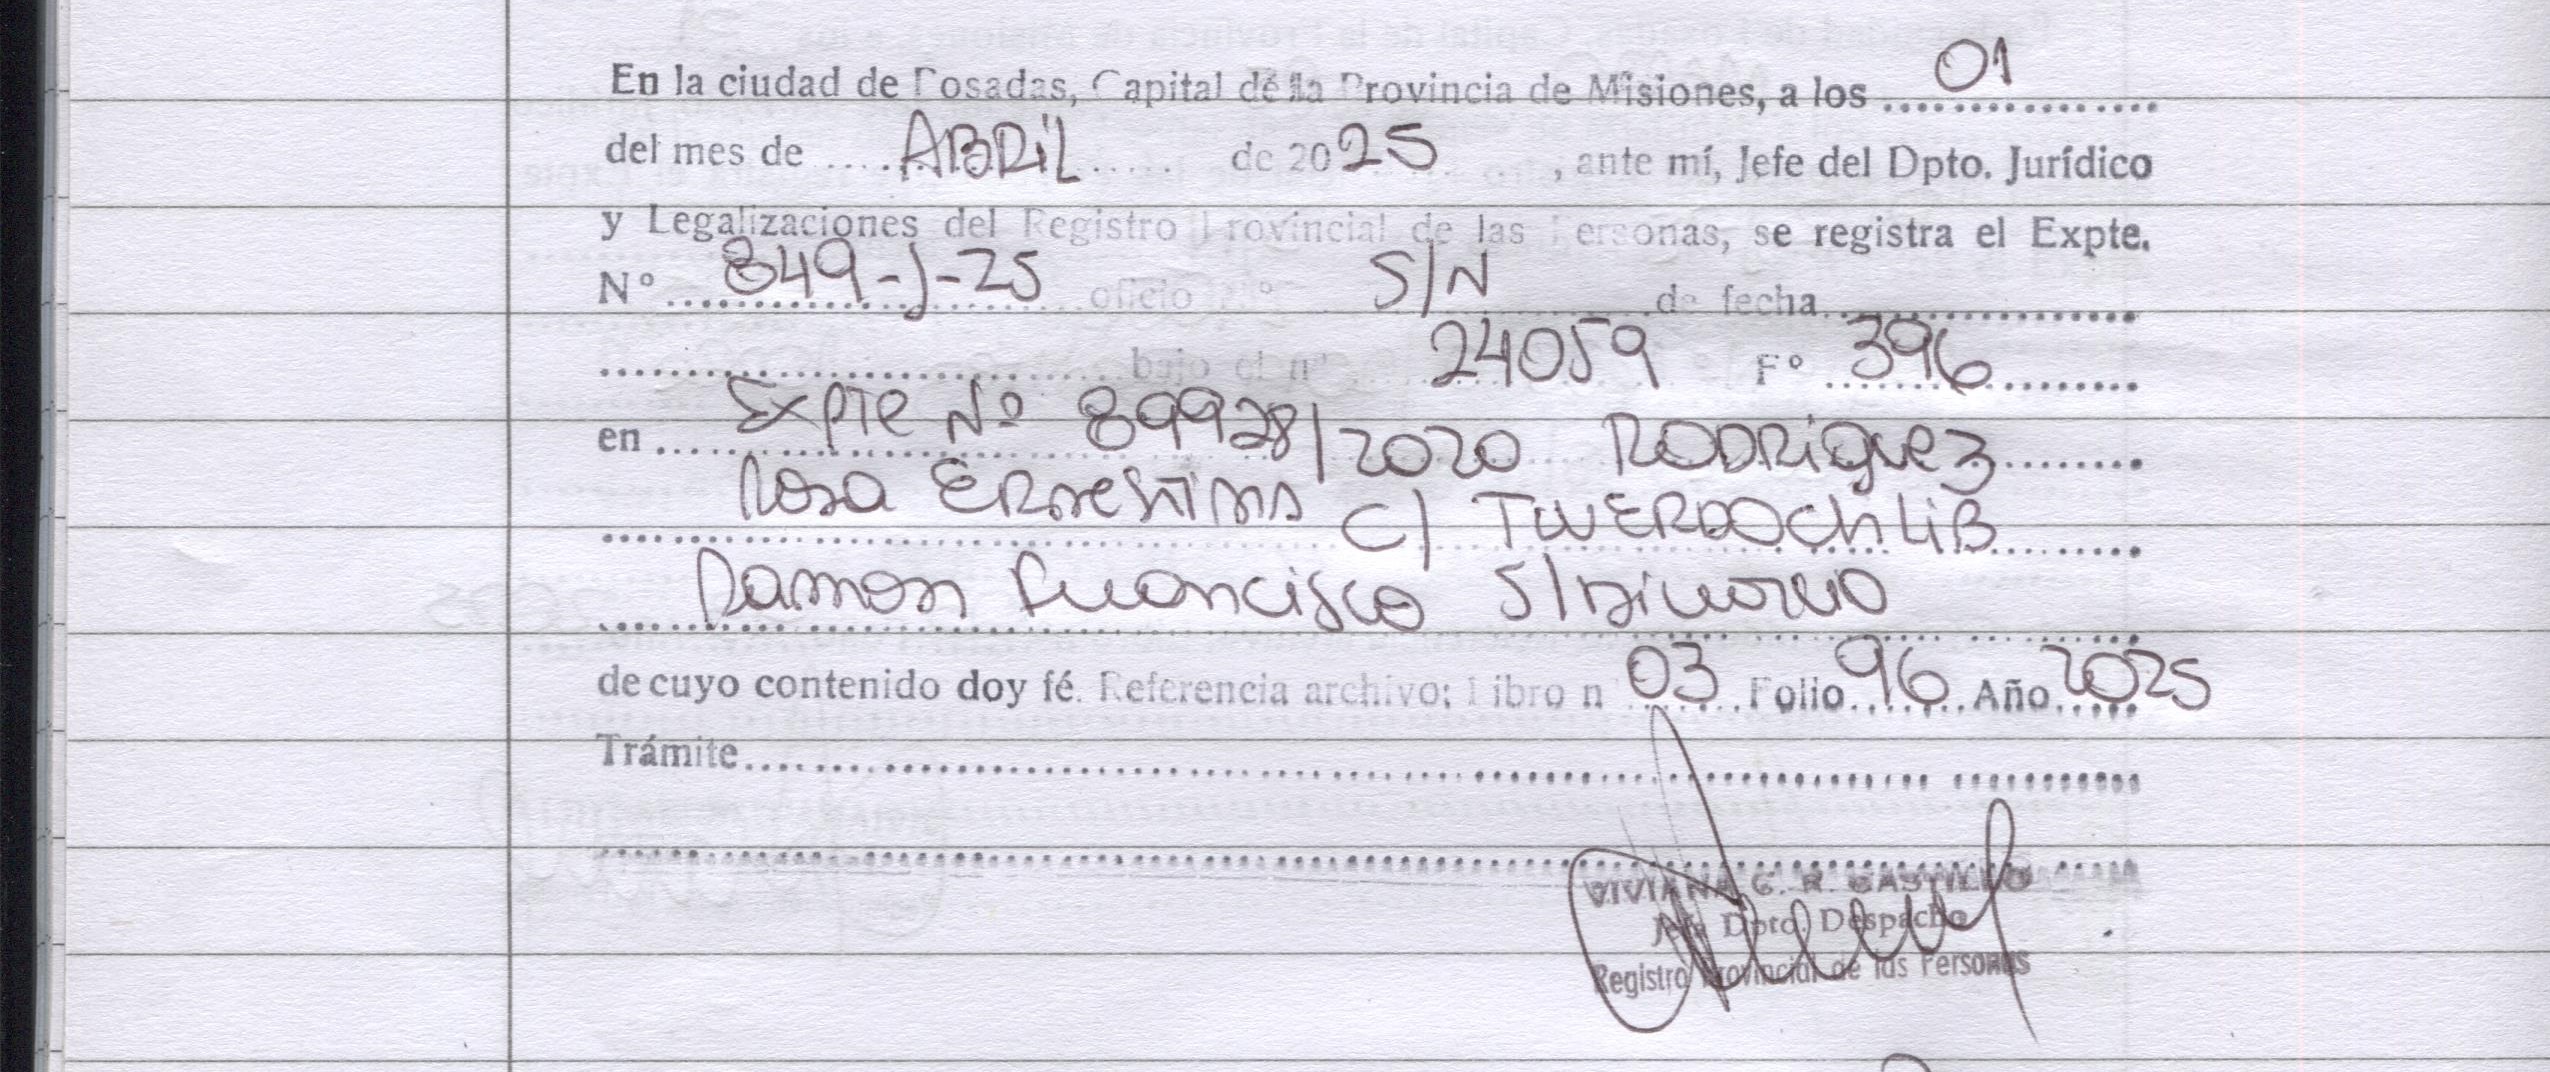 En la ciudad de Posadas, Capital de la Provincia de Misiones, a los 01
del mes de ABRiL de 2025, ante mí, Jefe del Dpto. Jurídico
y Legalizaciones del Registro Provincial de las Personas, se registra el Expte.
Nº 849-J-25 oficio Nº S/N de fecha
bajo el nº 24059 Fº 396
en Expte Nº 89928/2020 RODRiguez
Rosa ERnestina C/ TWERDOChLiB
Ramon Francisco S/Divorcio
de cuyo contenido doy fé. Referencia archivo: Libro nº 03 Folio 96 Año 2025
Trámite
VIVIANA G. R. CASTILLO
Jefa Dpto. Despacho
Registro Provincial de las Personas